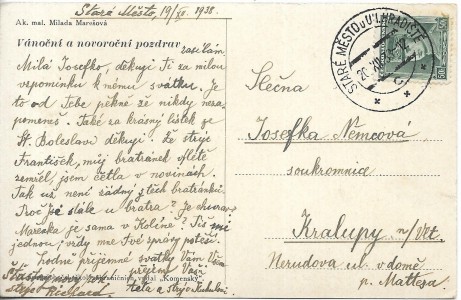 Staré Město, 19/XII. 1938.
Ak. mal. Milada Marešová
Vánoční a novoroční pozdrav zasílám
Milá Josefko, děkuji Ti za milou
vzpomínku k mému svátku. Je
to od Tebe pěkné že nikdy neza-
pomeneš. Také za krásný lístek ze
St. Boleslavi děkuji. Že strýc
František, můj bratranec
zemřel, jsem četla v novinách.
Tak už není žádný z těch bratránků
Proč jsi stále u bratra?
Mařenka je sama v Kolíně?
jednou, vždy mne Tvé zprávy potěší.
hodně příjemné svátky Vám
přejeme Vaši
Šťastný nový rok
teta a strýc
strýc Richard
STARÉ MĚSTO U UH. HRADIŠTĚ
50
Slečna
Josefka Němcová
soukromnid
Kralupy n/Vlt.
Nerudova ul. v domě
p. Mattesa